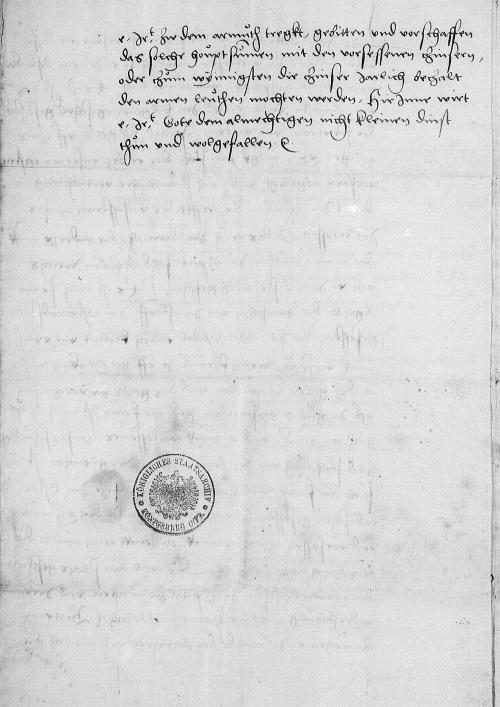 e. Jrt. zw dem armuth tregkt, gebitten und vorschaffen
das solche hauptsummen mit den vorsessenen czinsern,
oder czum wynnigsten die czinser Jarlich beczalt
den armen leuthen mochten werden. Hir Inne wirt
e. Jrt. Gote dem almechtigen nicht kleinen dinst
thun und wolgefallen. &
KÖNIGLICHES STAATSARCHIV
KÖNIGSBERG O/PR.